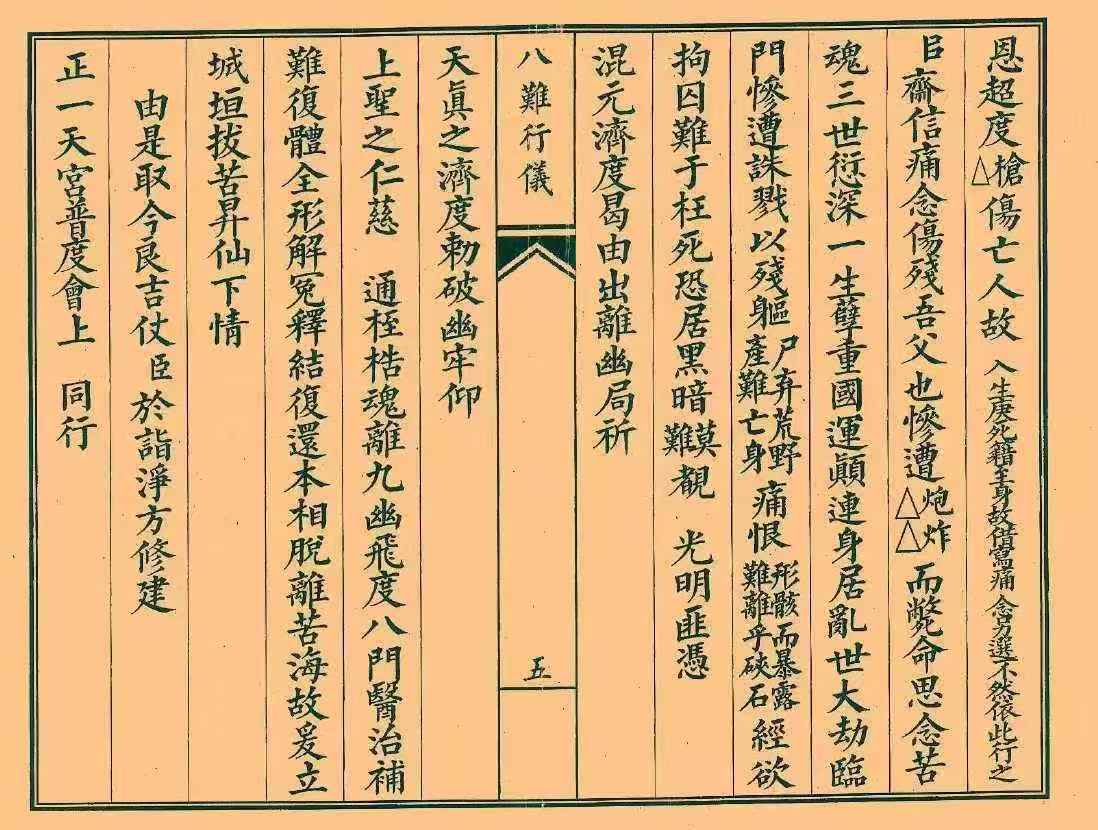 恩超度△槍傷亡人故 入生庚死籍至身故備寫痛念另選不然依此行之
臣齋信痛念傷殘吾父也慘遭△炮△炸而斃命思念苦
魂三世愆深一生孽重國運顚連身居亂世大劫臨
門慘遭誅戮以殘軀尸弃荒野產難亡身痛恨形骸而暴露難離乎硤石經欲
拘囚難于枉死恐居黑暗莫難覩 光明匪憑
混元濟度曷由出離幽局祈
八難行儀
五
天眞之濟度勅破幽牢仰
上聖之仁慈 通桎梏魂離九幽飛度八門醫治補
難復體全形解冤釋結復還本相脫離苦海故爰立
城垣拔苦昇仙下情
由是取今良吉仗臣於詣淨方修建
正一天宮普度會上 同行